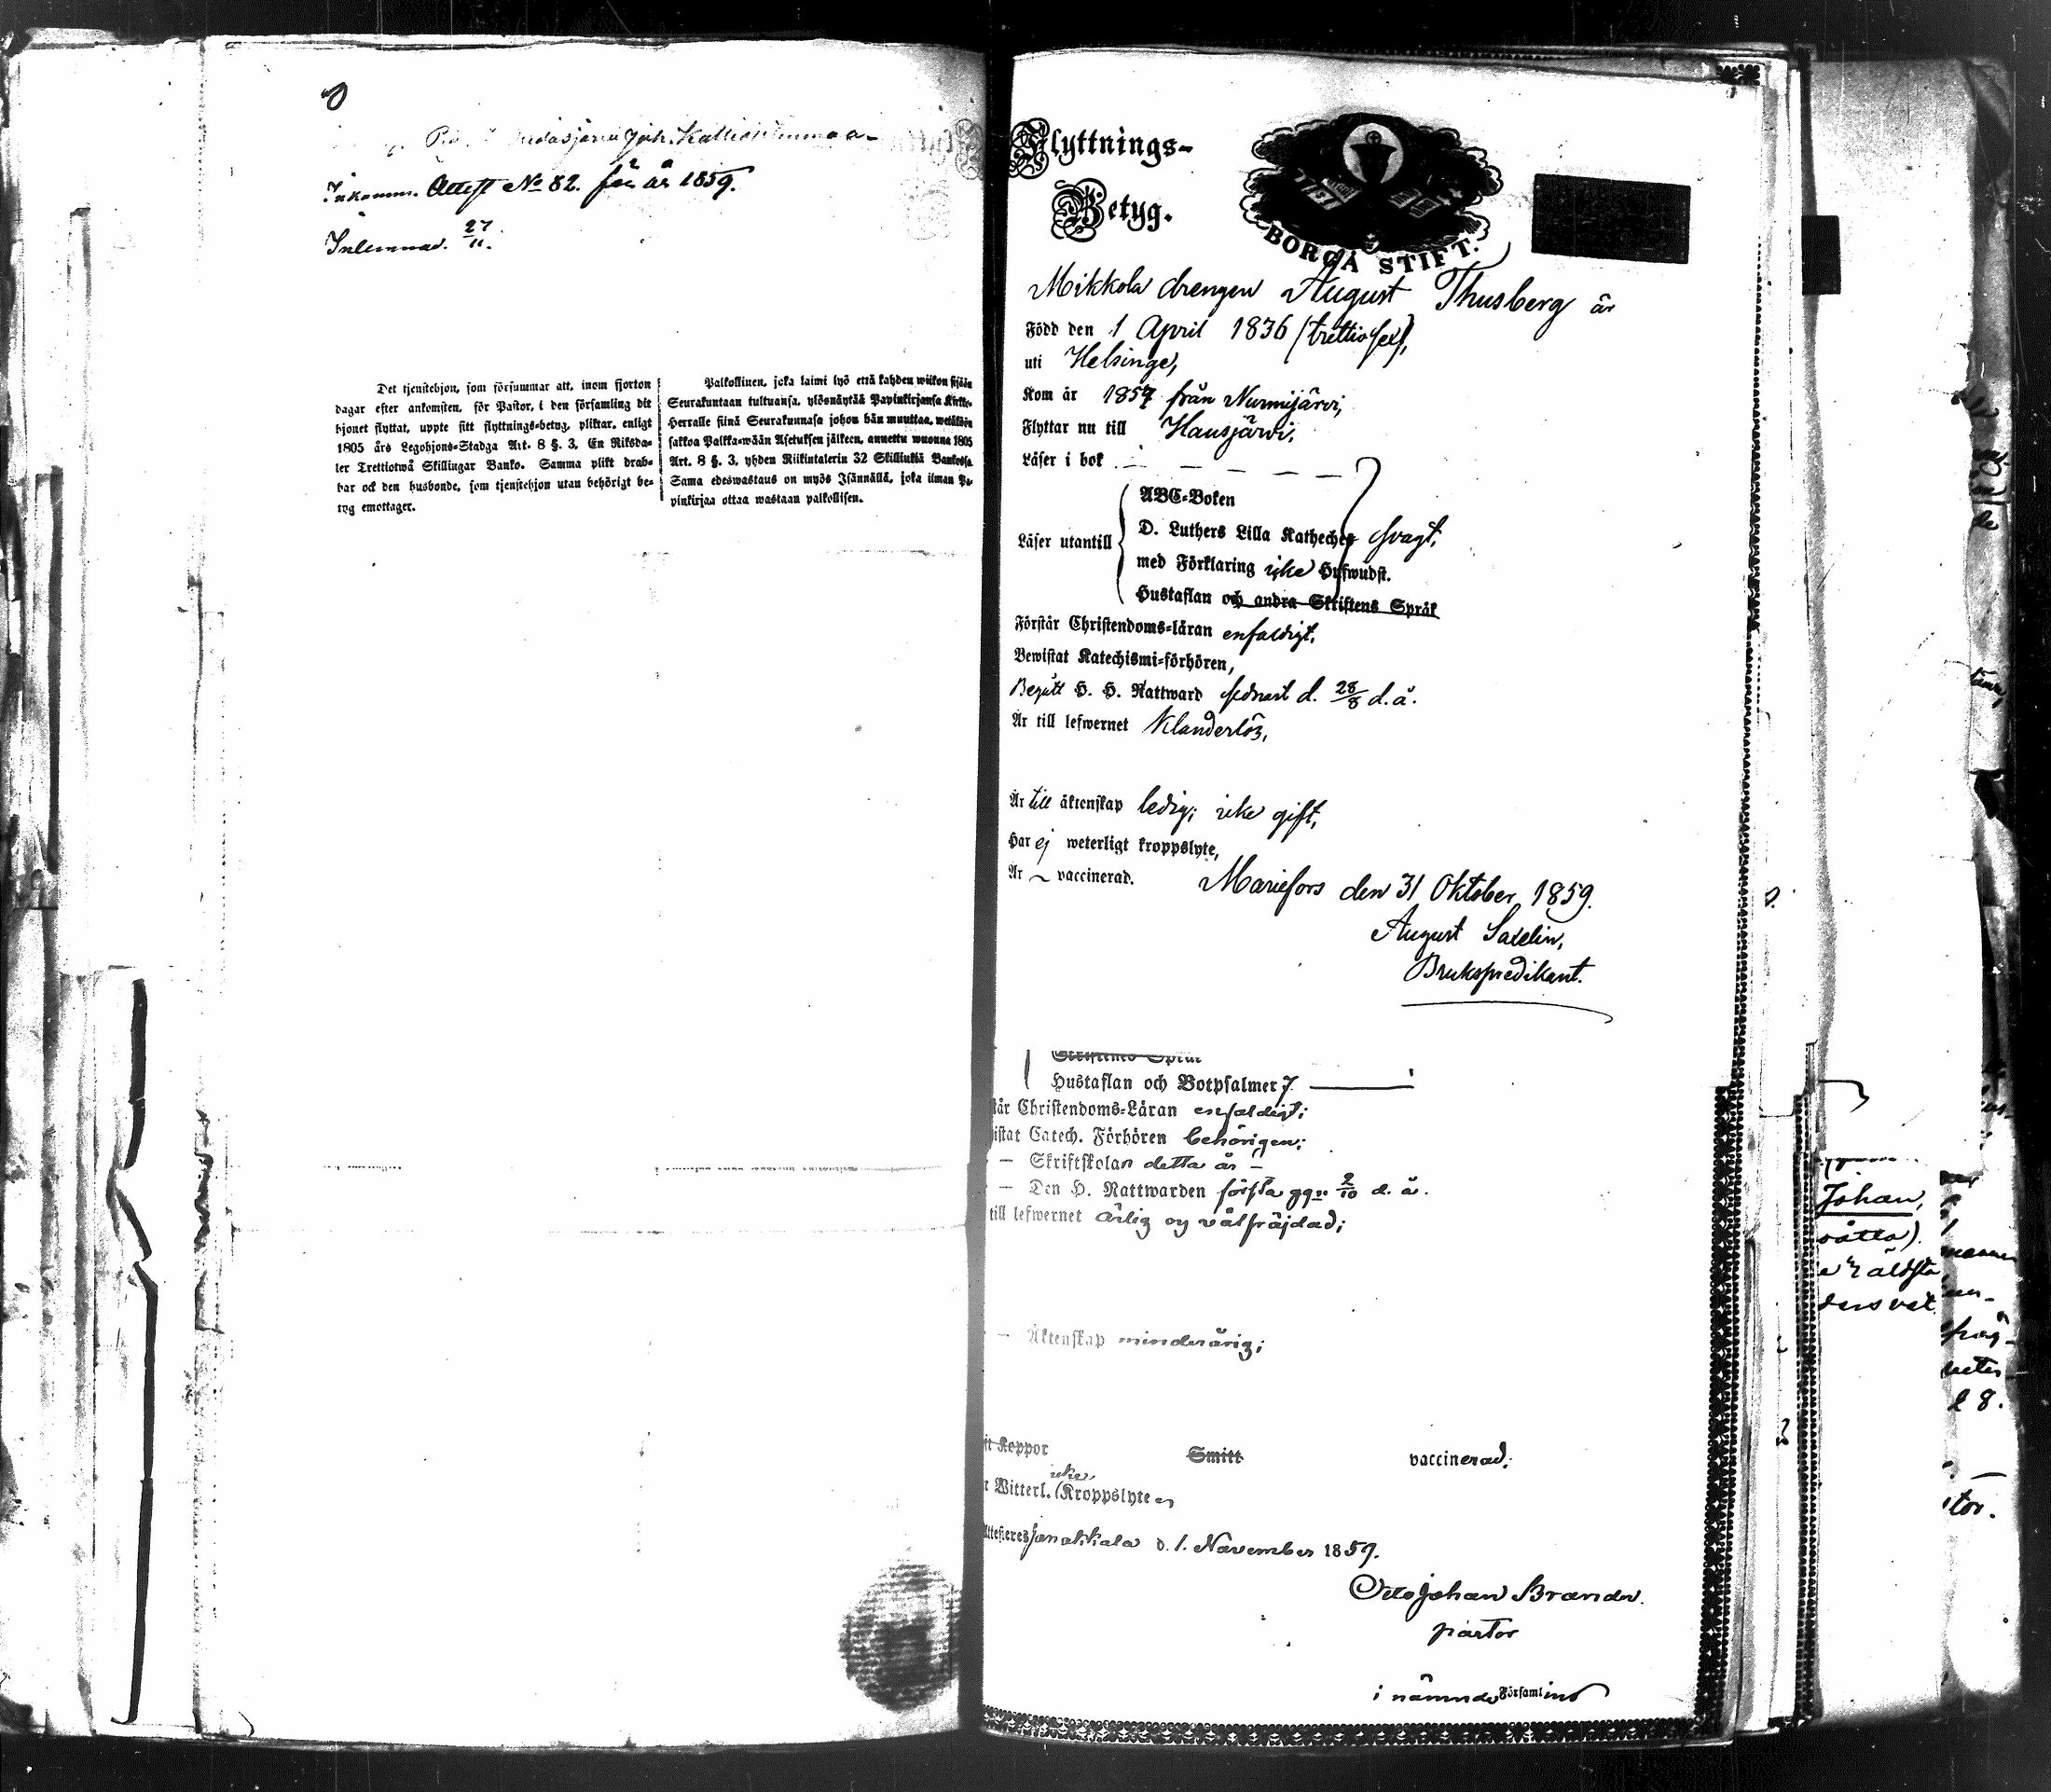 Joh. Kallio
Inkomm. Attest No 82. för år 1859.
Inlemnad. 27/11.
Det tjenstehjon, som försummar att, inom fjorton
dagar efter ankomsten, för Pastor, i den församling dit
hjonet flyttat, uppte sitt flyttnings-betyg, pliktar, enligt
1805 års Legohjons-Stadga Art. 8 §. 3. En Riksda-
ler Trettiotwå Skillingar Banko. Samma plikt drab-
bar ock den husbonde, som tjenstehjon utan behörigt be-
tyg emottager.
Palkollinen, joka laimi lyö että kahden wiikon sisään
Seurakuntaan tultuansa, ylösnäytää Papinkirjansa Kirkko-
Herralle siinä Seurakunnasa johon hän muuttaa, wetäköön
sakkoa Palkka-wään Asetuksen jälkeen, annettu wuonna 1805
Art. 8 §. 3. yhden Riikintalerin 32 Skillinkiä Bankossa
Sama edeswastaus on myös Isännällä, joka ilman Pa-
pinkirjaa ottaa wastaan palkollisen.
Flyttnings-
Betyg.
BORGÅ STIFT.
Mikkola drengen August Thusberg är
Född den 1 April 1836 (trettiosex),
uti Helsinge,
Kom år 1857 från Nurmijärvi,
Flyttar nu till Hausjärvi.
Läser i bok
Läser utantill
ABC-Boken
D. Luthers Lilla Kateches svagt,
med Förklaring icke Hufwudst.
Hustaflan och andra Skriftens Språk
Förstår Christendoms-läran enfaldigt.
Bewistat Katechismi-förhören,
Begått H. H. Nattward sednast d. 28/8 d. å.
Är till lefwernet klanderlös,
Är till äktenskap ledig; icke gift,
Har ej weterligt kroppslyte,
Är vaccinerad.
Mariefors den 31 Oktober 1859.
August Saxelin,
Brukspredikant.
Skriftenes Språk
Hustaflan och Botpsalmer 7
står Christendoms-Läran enfaldigt;
istat Catech. Förhören behörigen;
— Skriftskolan detta år —
— Den H. Nattwarden första ggn 2/10 d. å.
till lefwernet ärlig og välfräjdad;
— Äktenskap minderårig;
ft Koppor Smitt vaccinerad;
r Witterl. icke Kroppslyte
Attesteres Janakkala d. 1. November 1859.
Otto Johan Brander.
pastor
i nämnde Församling
Johan,